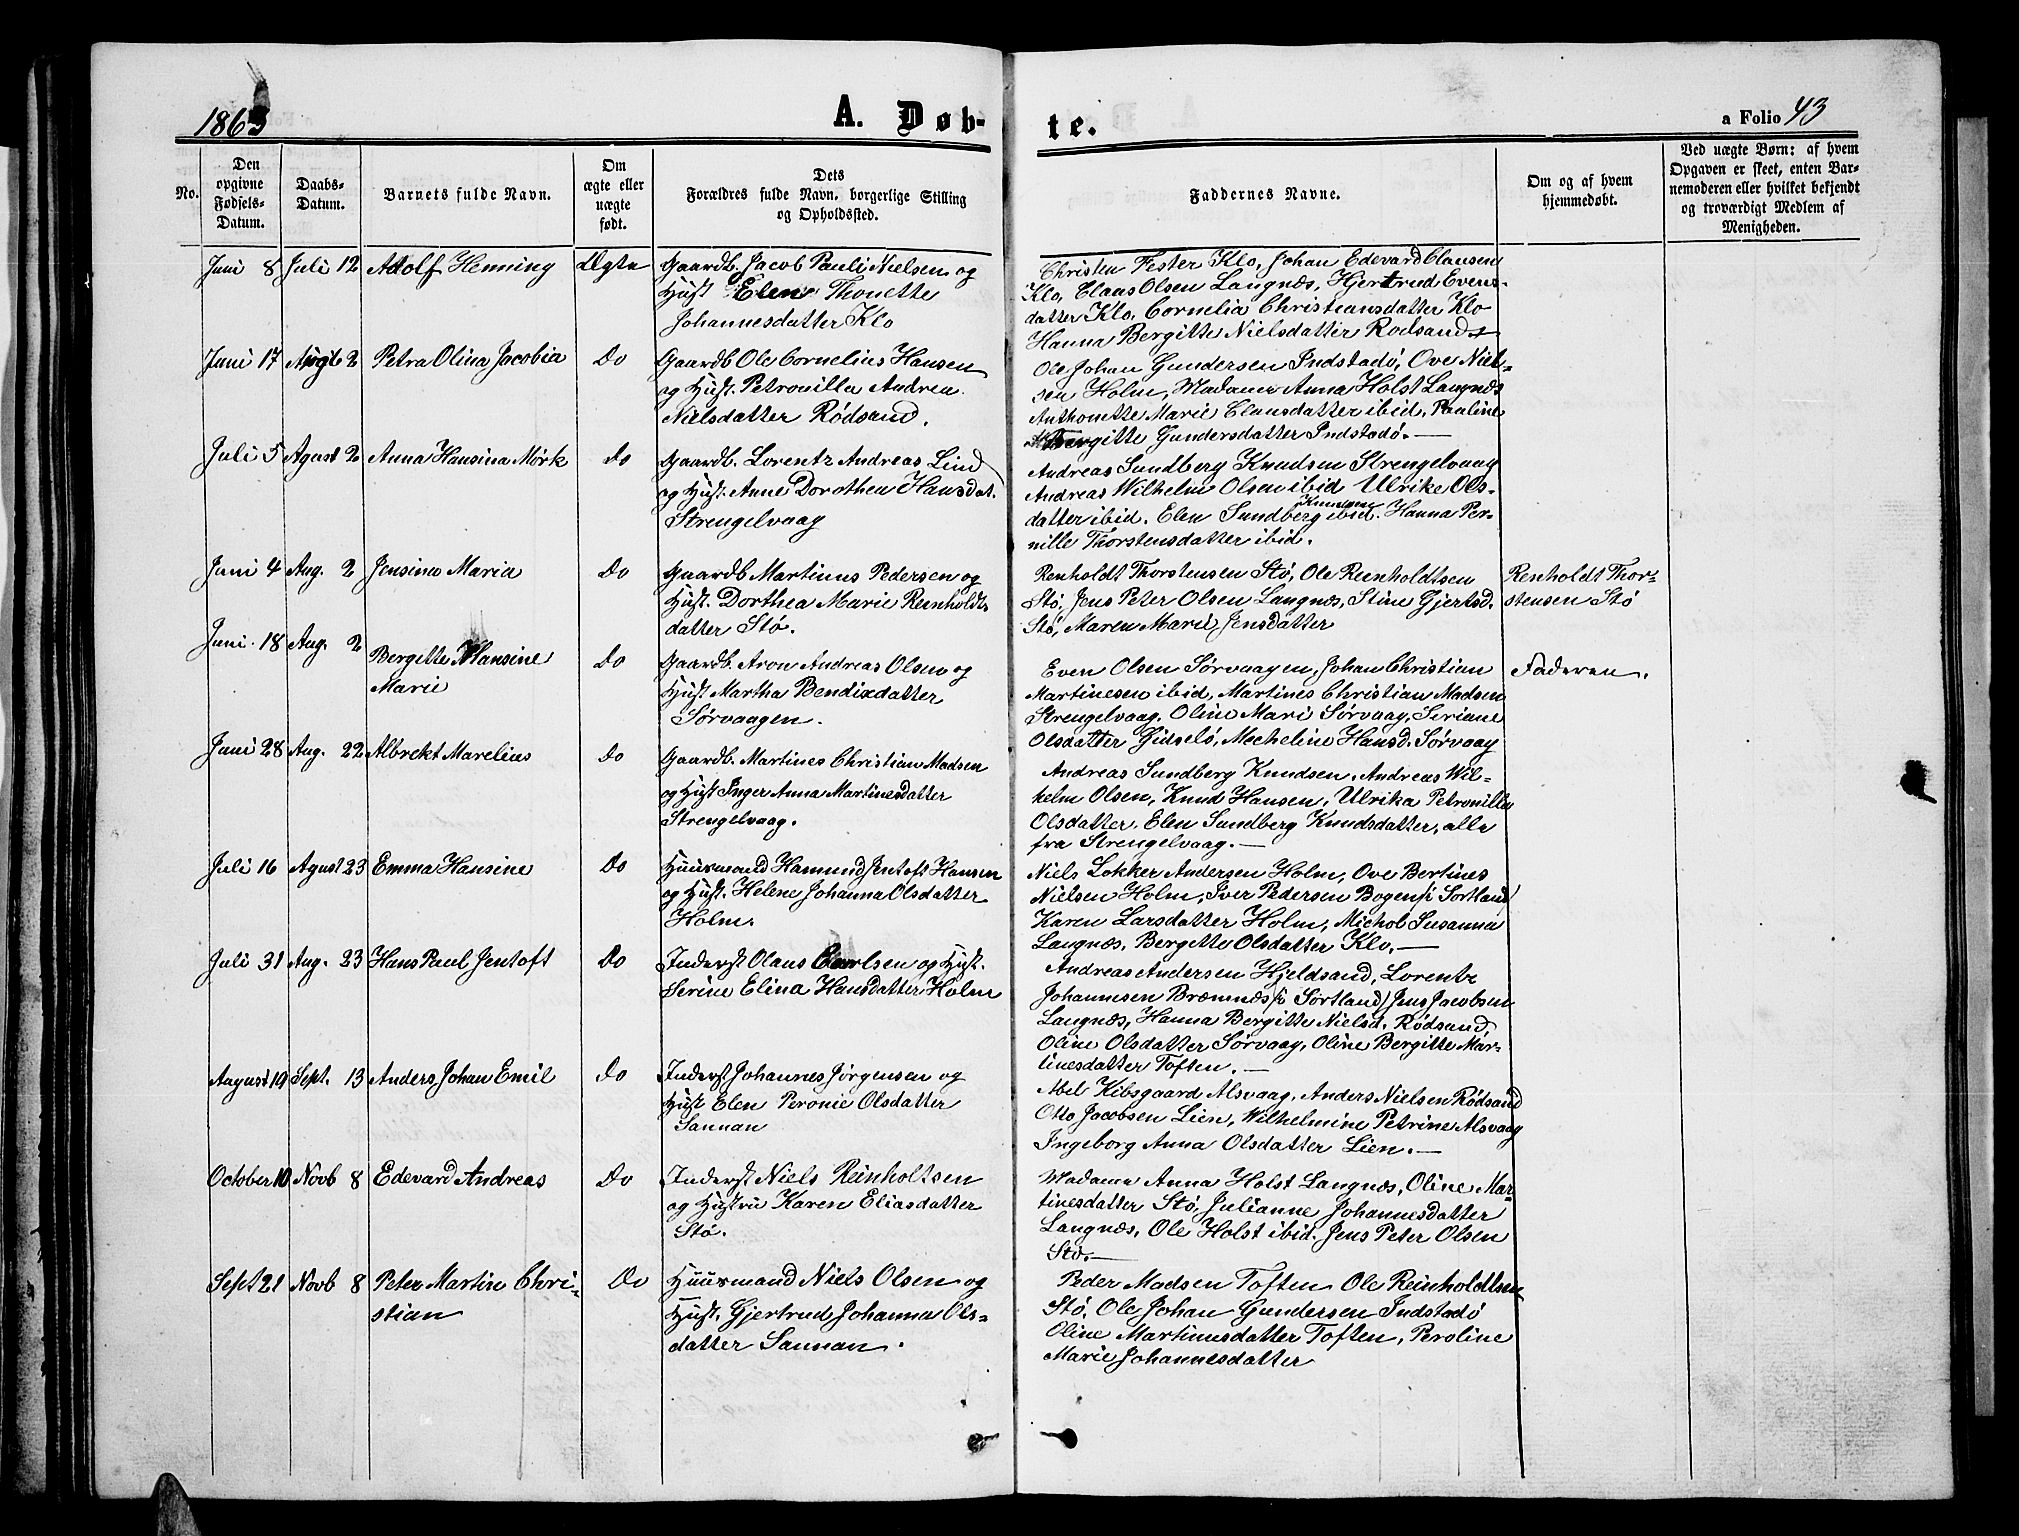 1863
A. Døb-
te.
a Folio 43
No.
Den
opgivne
Fødsels-
Datum.
Daabs-
Datum.
Barnets fulde Navn.
Om
ægte eller
uægte
født.
Dets
Forældres fulde Navn, borgerlige Stilling
og Opholdssted.
Faddernes Navne.
Om og af hvem
hjemmedøbt.
Ved uægte Børn: af hvem
Opgaven er skeet, enten Bar-
nemoderen eller hvilket bekjendt
og troværdigt Medlem af
Menigheden.
Juni 8 Juli 12 Adolf Henning Ægte
Gaardb. Jacob Pauli Nielsen og
Hust Elen Thonette
Johannesdatter Klo
Christen Fester Klo, Johan Edevard Clausen
Klo, Claus Olsen Langnæs, Hjertrud Evens-
datter Klo, Cornelia Christiansdatter Klo
Hanna Bergitte Nielsdatter Rødsand
Juni 17 Augt 2 Petra Olina Jacobia Do
Gaardb Ole Cornelius Hansen
og Hust. Petronilla Andrea
Nielsdatter Rødsand.
Ole Johan Gundersen Indstadø, Ove Niel-
sen Holm, Madame Anna Holst Langnæs
Anthonette Marie Clausdatter ibid, Pauline
Bergitte Gundersdatter Indstadø.—
Juli 5 Agust 2 Anna Hansina Mørk Do
Gaardb. Lorentz Andreas Lind
og Hust. Anne Dorothea Hansdat.
Strengelvaag
Andreas Sundberg Knudsen Strengelvaag
Andreas Wilhelm Olsen ibid Ulrike Ols-
datter ibid. Elen Sundberg Knudsen ibid. Hanna Per-
nille Thorstensdatter ibid.
Juni 4 Aug. 2 Jensina Maria Do
Gaardb Martinus Pedersen og
Hust. Dorthea Marie Reinholdts
datter Stø.
Renholdt Thorstensen Stø, Ole Reinholdtsen
Stø, Jens Peter Olsen Langnæs, Stine Gjertsd.
Stø, Maren Marie Jensdatter
Renholdt Thor-
stensen Stø
Juni 18 Aug. 2 Bergitte Hansine
Marie
Do
Gaardb. Aron Andreas Olsen og
Hust Martha Bendixdatter
Sørvaagen.
Even Olsen Sørvaagen, Johan Christian
Martinesen ibid, Martines Christian Madsen
Strengelvaag, Oline Mari Sørvaag, Seriane
Olsdatter Gidselø, Mecheline Hansd. Sørvaag
Faderen.
Juni 28 Aug. 22 Albrekt Marelius Do
Gaardb. Martines Christian Madsen
og Hust Inger Anna Martinesdatter
Strengelvaag.
Andreas Sundberg Knudsen, Andreas Wil-
helm Olsen, Knud Hansen, Ulrika Petronilla
Olsdatter, Elen Sundberg Knudsdatter, alle
fra Strengelvaag.—
Juli 16 Agust 23 Emma Hansine Do
Huusmand Hamund Jentoft Hansen
og Hust. Helene Johanna Olsdatter
Holm.
Niels Lokker Andersen Holm, Ove Bertines
Nielsen Holm, Iver Pedersen Bogen i Sortland
Karen Larsdatter Holm, Michol Susanna
Langnæs, Bergitte Olsdatter Klo.—
Juli 31 Aug. 23 Hans Paul Jentoft Do
Inderst Olaus Carlsen og Hust.
Serine Elina Hansdatter Holm
Andreas Andersen Hjeldsand, Lorentz
Johannesen Bræmnæs i Sortland Jens Jacobsen
Langnæs, Hanna Bergitte Nielsd. Rødsand,
Oline Olsdatter Sørvaag, Oline Bergitte Mar-
tinesdatter Toften.—
August 19 Sept. 13 Anders Johan Emil Do
Inderst Johannes Jørgensen og
Hust Elen Peronie Olsdatter
Sannan
Abel Kibsgaard Alsvaag, Anders Nielsen Rødsand
Otto Jacobsen Lien, Wilhelmine Petrine Alsvaag
Ingeborg Anna Olsdatter Lien.—
October 10 Novb 8 Edevard Andreas Do
Inderst Niels Reinholtsen
og Hustru Karen Eliasdatter
Stø.
Madame Anna Holst Langnæs, Oline Mar-
tinesdatter Stø, Julianne Johannesdatter
Langnæs, Ole Holst ibid. Jens Peter Olsen
Stø.—
Sept 21 Novb 8 Peter Martin Chri-
stian
Do
Huusmand Niels Olsen og
Hust. Gjertrud Johanna Ols-
datter Sannan.
Peder Madsen Toften Ole Reinholdtsen
Stø, Ole Johan Gundersen Indstadø
Oline Martinusdatter Toften, Peroline
Marie Johannesdatter